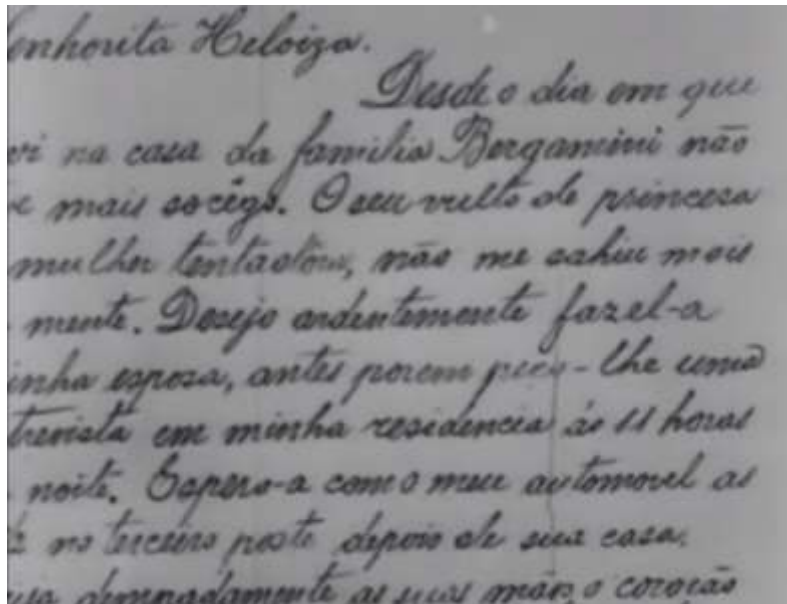 enhorita Heloiza.
Desde o dia em que
vi na casa da familia Bergamini não
mais socêgo. O seu vulto de princesa
mulher tentadôra, não me sahiu mais
mente. Desejo ardentemente fazel-a
inha esposa, antes porem peço-lhe uma
trevista em minha residencia ás 11 horas
noite. Espero-a com o meu automovel as
no terceiro poste depois de sua casa.
as suas mãos o coração